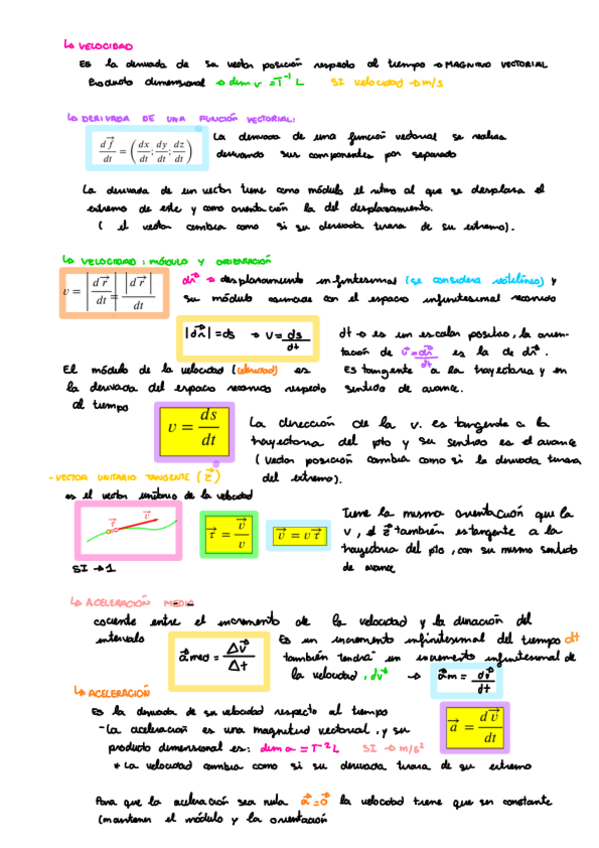 ↳ VELOCIDAD
Es la derivada de su vector posición respecto al tiempo → MAGNITUD VECTORIAL
Producto dimensional → dim v = T⁻¹ L SI velocidad → m/s
↳ DERIVADA DE UNA FUNCIÓN VECTORIAL:
d f⃗ / dt = (dx/dt ; dy/dt ; dz/dt)
La derivada de una función vectorial se realiza
derivando sus componentes por separado
La derivada de un vector tiene como módulo el ritmo al que se desplaza el
extremo de este y como orientación la del desplazamiento.
( el vector cambia como si su derivada tirara de su extremo).
↳ VELOCIDAD: MÓDULO Y ORIENTACIÓN
v = |d r⃗ / dt| = |d r⃗| / dt
dr⃗ → desplazamiento infinitesimal (se considera rectilíneo) y
su módulo coincide con el espacio infinitesimal recorrido
|dr⃗| = ds → v = ds/dt
dt → es un escalar positivo, la orien-
tación de v⃗ = dr⃗/dt es la de dr⃗.
Es tangente a la trayectoria y en
sentido de avance.
El módulo de la velocidad (celeridad) es
la derivada del espacio recorrido respecto
al tiempo
v = ds/dt
La dirección de la v. es tangente a la
trayectoria del pto y su sentido es el avance
(vector posición cambia como si la derivada tirara
del extremo).
- VECTOR UNITARIO TANGENTE (τ⃗)
es el vector unitario de la velocidad
τ⃗ v⃗
τ⃗ = v⃗ / v
v⃗ = v τ⃗
SI → 1
Tiene la misma orientación que la
v, el τ⃗ también es tangente a la
trayectoria del pto, con su mismo sentido
de avance
↳ ACELERACIÓN MEDIA
cociente entre el incremento de la velocidad y la duración del
intervalo
a⃗med = Δv⃗ / Δt
Es un incremento infinitesimal del tiempo dt
también tendrá un incremento infinitesimal de
la velocidad, dv⃗ → a⃗m = dv⃗/dt
↳ ACELERACIÓN
Es la derivada de su velocidad respecto al tiempo
- La aceleración es una magnitud vectorial, y su
producto dimensional es: dim a = T⁻² L SI → m/s²
* La velocidad cambia como si su derivada tirara de su extremo
a⃗ = d v⃗ / dt
Para que la aceleración sea nula a⃗ = 0⃗ la velocidad tiene que ser constante
(mantener el módulo y la orientación